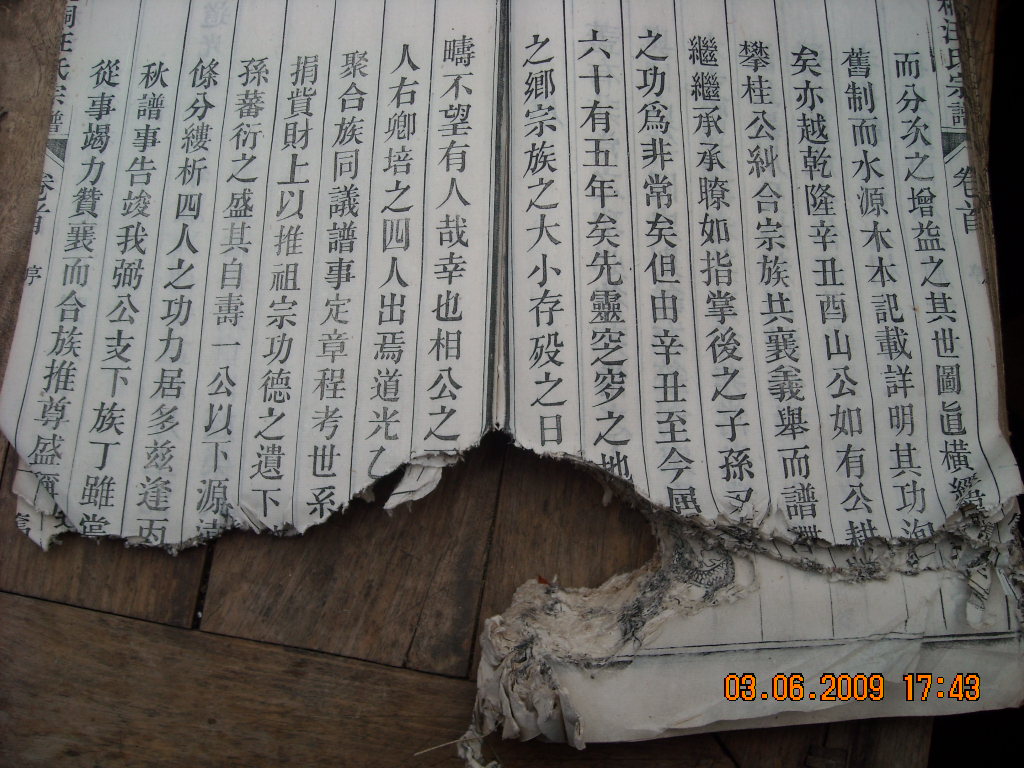 汪氏宗譜 卷首
而分次之增益之其世圖眞橫
舊制而水源木本記載詳明其功洵
矣亦越乾隆辛丑酉山公如有公耕
攀桂公糾合宗族共襄義舉而譜
繼繼承承瞭如指掌後之子孫
之功爲非常矣但由辛丑至今屆
六十有五年矣先靈窀穸之地
之鄉宗族之大小存殁之日
疇不望有人哉幸也相公之
人右卿培之四人出焉道光乙
聚合族同議譜事定章程考世系
捐貲財上以推祖宗功德之遺下
孫蕃衍之盛其自壽一公以下源
條分縷析四人之功力居多兹逢丙
秋譜事告竣我弼公支下族丁雖
從事竭力贊襄而合族推尊盛
桐汪氏宗譜 卷首 序
03.06.2009 17:43